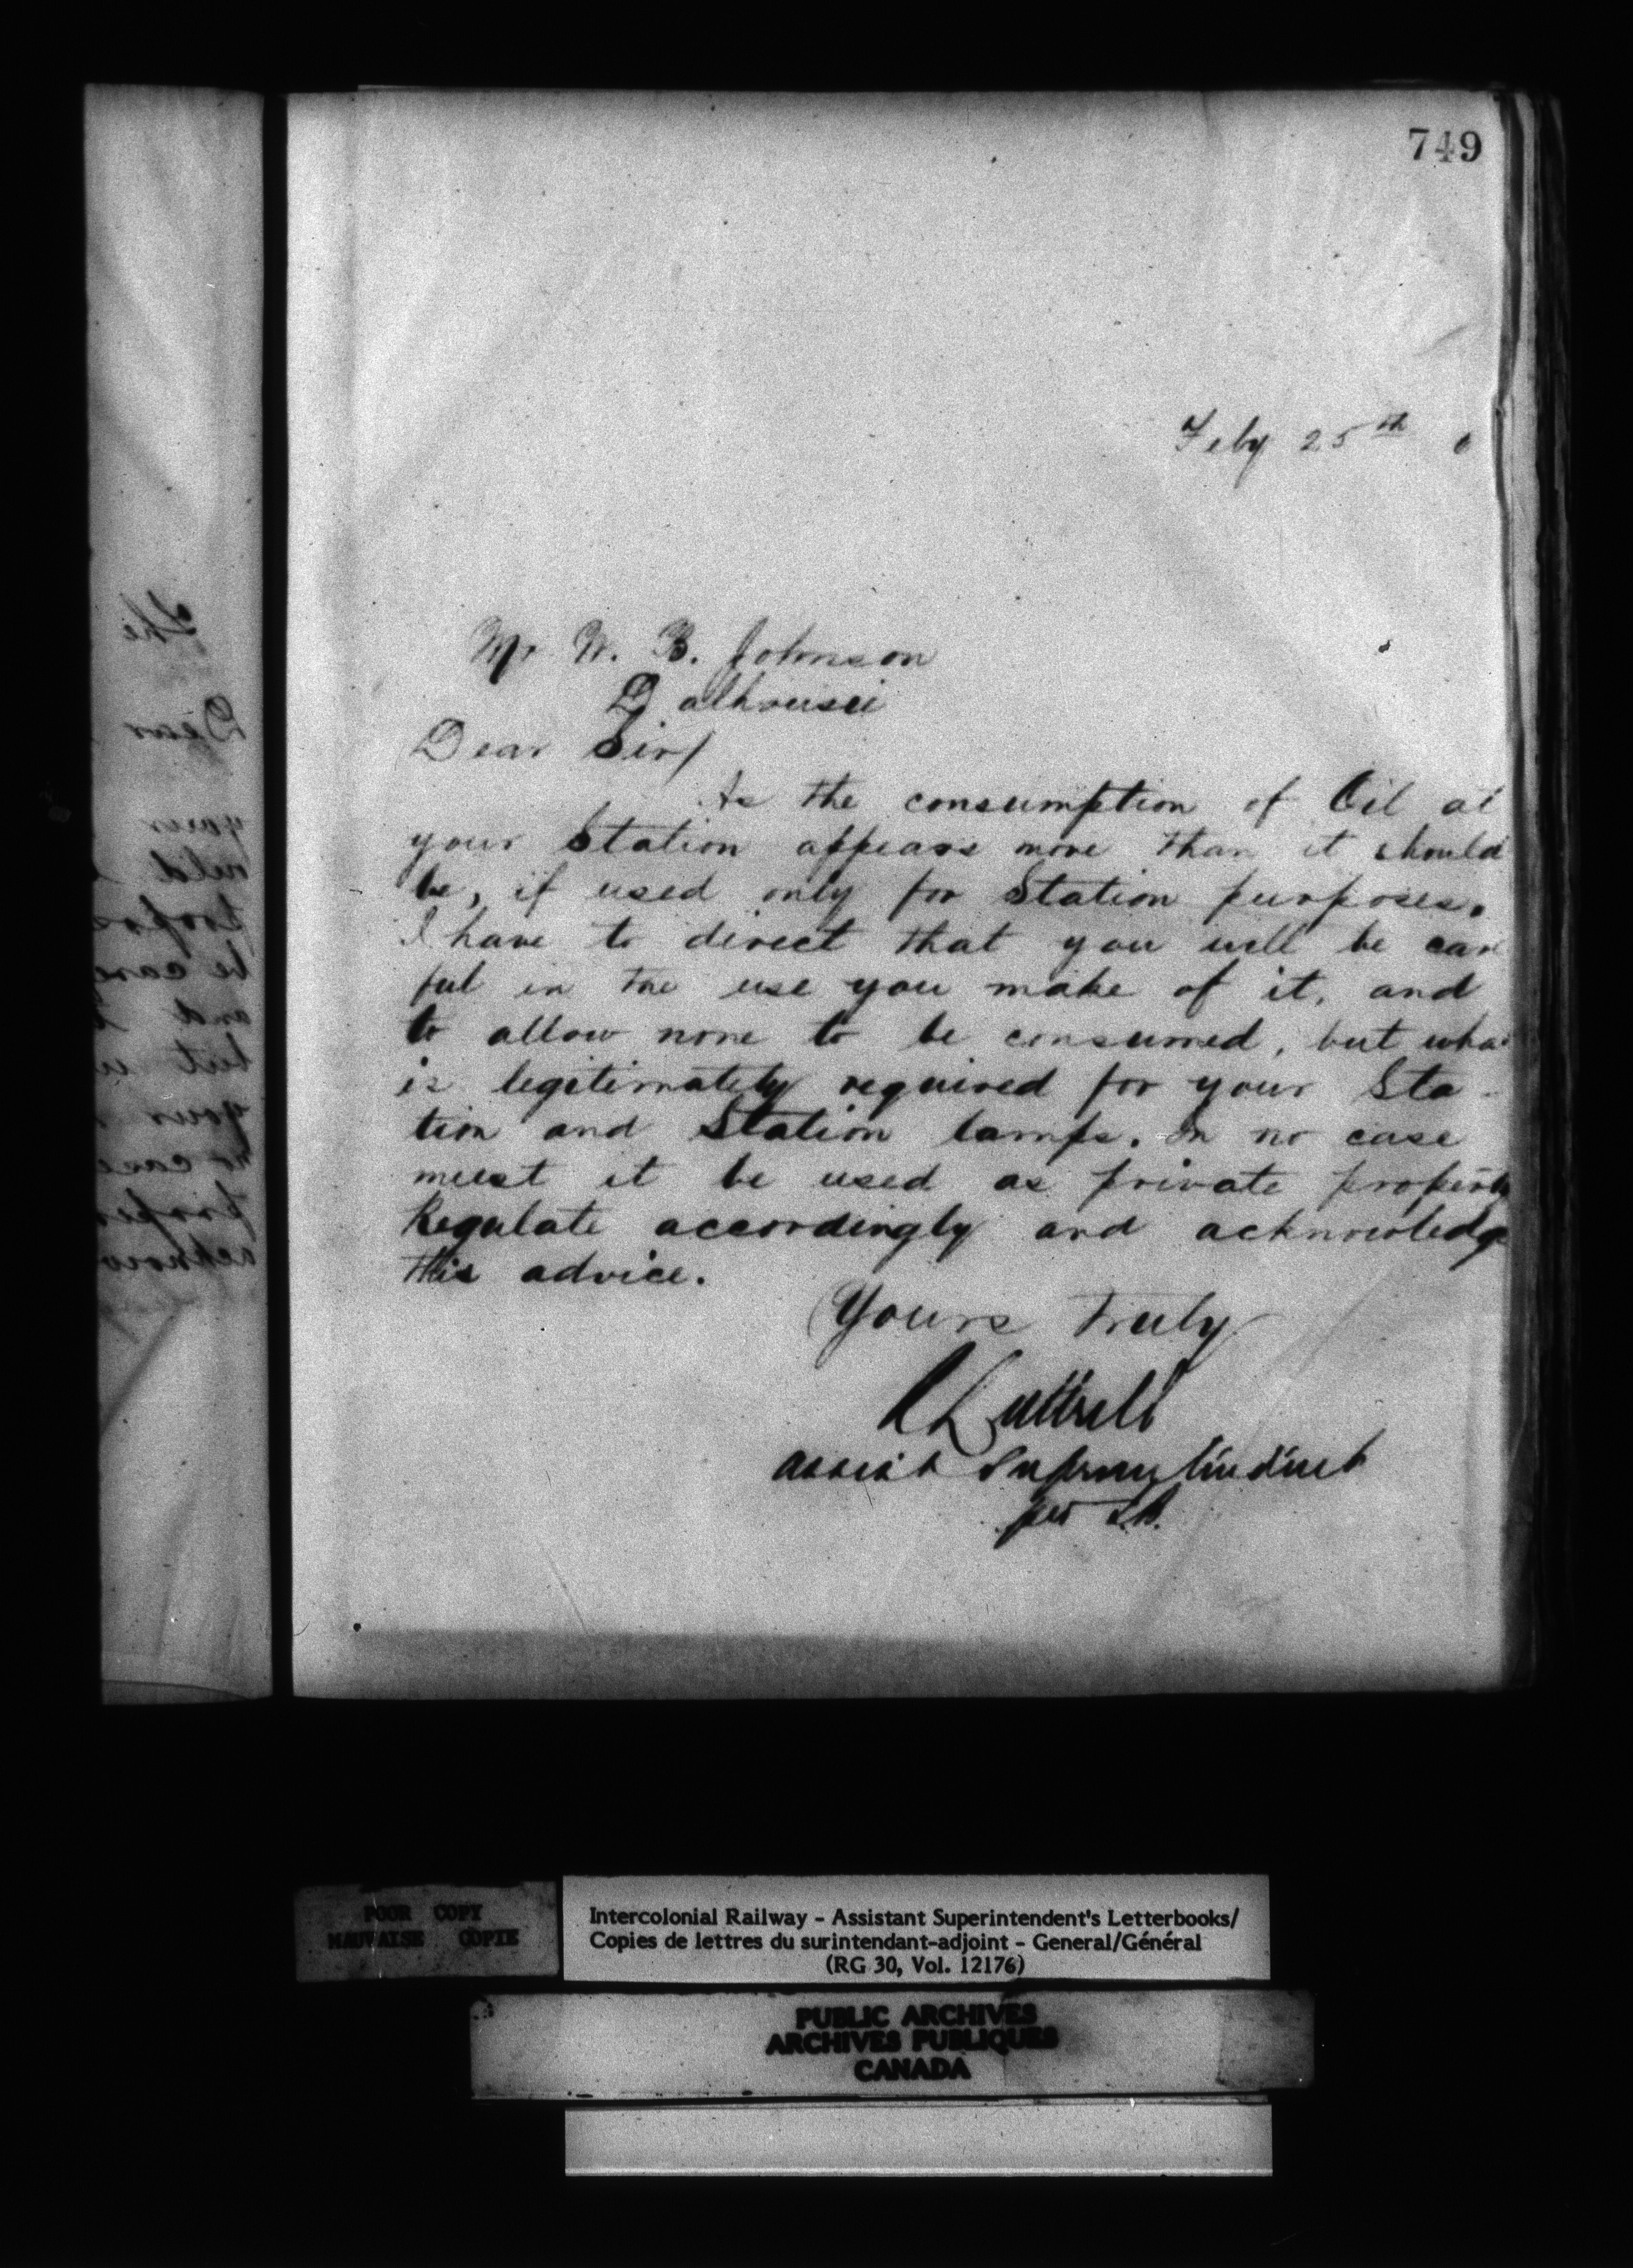 749
Feby 25th
Mr W. B. Johnson
Dalhousie
Dear Sir/
As the consumption of Oil at
your Station appears more than it should
be, if used only for Station purposes.
I have to direct that you will be care
ful in the use you make of it, and
to allow none to be consumed, but what
is legitimately required for your Sta-
tion and Station lamps. In no case
must it be used as private property
Regulate accordingly and acknowledge
this advice.
Yours truly
Assist Superintendent
per
The
Dear
your
be care
and
but
your
no case
acknow
POOR COPY
MAUVAISE COPIE
Intercolonial Railway - Assistant Superintendent's Letterbooks/
Copies de lettres du surintendant-adjoint - General/Général
(RG 30, Vol. 12176)
PUBLIC ARCHIVES
ARCHIVES PUBLIQUES
CANADA